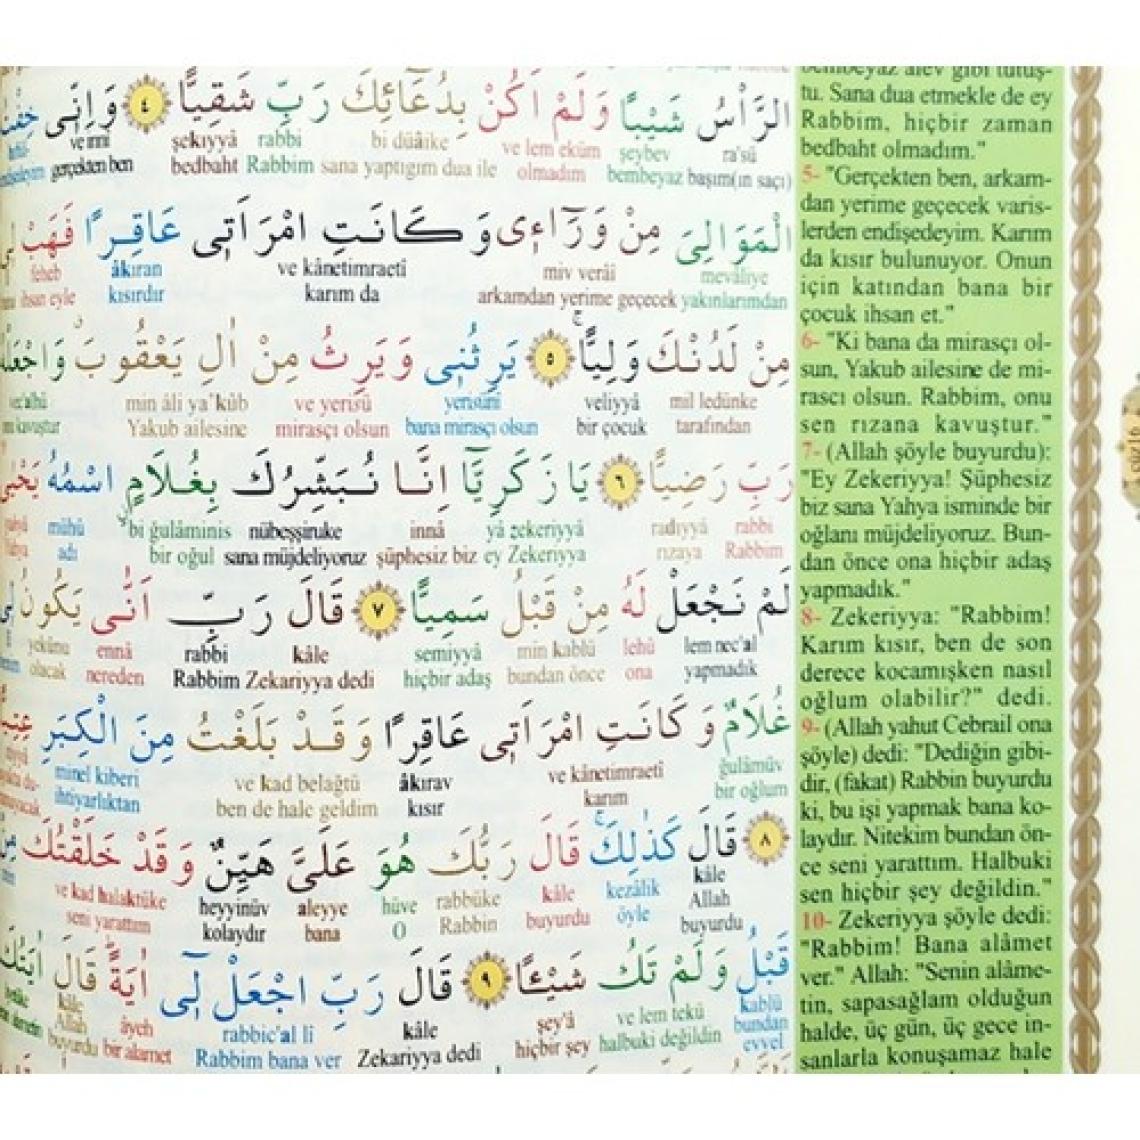 الرَّأْسُ شَيْبًا وَلَمْ اَكُنْ بِدُعَائِكَ رَبِّ شَقِيًّا ٤ وَاِنّٖى
ra'sü şeybev ve lem eküm bi düâike rabbi şekıyyâ
başım(ın saçı) bembeyaz olmadım sana yaptıgım dua ile Rabbim bedbaht gerçekten ben
الْمَوَالِىَ مِنْ وَرَٓاءٖى وَكَانَتِ امْرَاَتٖى عَاقِرًا فَهَبْ
mevâliye miv verâi ve kânetimraetî âkıran feheb
yakınlarımdan arkamdan yerime geçecek karım da kısırdır ihsan eyle
مِنْ لَدُنْكَ وَلِيًّا ٥ يَرِثُنٖى وَيَرِثُ مِنْ اٰلِ يَعْقُوبَ
mil ledünke veliyyâ yerisünî ve yerisü min âli ya'kûb
tarafından bir çocuk bana mirasçı olsun mirasçı olsun Yakub ailesine
رَبِّ رَضِيًّا ٦ يَا زَكَرِيَّٓا اِنَّا نُبَشِّرُكَ بِغُلَامٍ اسْمُهُ
rabbi radıyyâ yâ zekeriyyâ innâ nübeşşiruke bi ğulâminis mühû
Rabbim rızaya ey Zekeriyya şüphesiz biz sana müjdeliyoruz bir oğul adı
لَمْ نَجْعَلْ لَهُ مِنْ قَبْلُ سَمِيًّا ٧ قَالَ رَبِّ اَنّٰى يَكُونُ
lem nec'al lehû min kablü semiyyâ kâle rabbi ennâ yekûnu
yapmadık ona bundan önce hiçbir adaş Zekariyya dedi Rabbim nereden olacak
غُلَامٌ وَكَانَتِ امْرَاَتٖى عَاقِرًا وَقَدْ بَلَغْتُ مِنَ الْكِبَرِ
ğulâmüv ve kânetimraetî âkırav ve kad belağtü minel kiberi
bir oğlum karım kısır ben de hale geldim ihtiyarlıktan
٨ قَالَ كَذٰلِكَ قَالَ رَبُّكَ هُوَ عَلَىَّ هَيِّنٌ وَقَدْ خَلَقْتُكَ
kâle kezâlik kâle rabbüke hüve aleyye heyyinüv ve kad halaktüke
Allah buyurdu öyle buyurdu Rabbin O bana kolaydır seni yarattım
قَبْلُ وَلَمْ تَكُ شَيْـًٔا ٩ قَالَ رَبِّ اجْعَلْ لٖٓى اٰيَةً قَالَ
kablü ve lem tekü şey'â kâle rabbic'al lî âyeh kâle
bundan evvel halbuki değildin hiçbir şey Zekariyya dedi Rabbim bana ver bir alamet Allah buyurdu
bembeyaz alev gibi tutuş-
tu. Sana dua etmekle de ey
Rabbim, hiçbir zaman
bedbaht olmadım."
5- "Gerçekten ben, arkam-
dan yerime geçecek varis-
lerden endişedeyim. Karım
da kısır bulunuyor. Onun
için katından bana bir
çocuk ihsan et."
6- "Ki bana da mirasçı ol-
sun, Yakub ailesine de mi-
rasçı olsun. Rabbim, onu
sen rızana kavuştur."
7- (Allah şöyle buyurdu):
"Ey Zekeriyya! Şüphesiz
biz sana Yahya isminde bir
oğlanı müjdeliyoruz. Bun-
dan önce ona hiçbir adaş
yapmadık."
8- Zekeriyya: "Rabbim!
Karım kısır, ben de son
derece kocamışken nasıl
oğlum olabilir?" dedi.
9- (Allah yahut Cebrail ona
şöyle) dedi: "Dediğin gibi-
dir, (fakat) Rabbin buyurdu
ki, bu işi yapmak bana ko-
laydır. Nitekim bundan ön-
ce seni yarattım. Halbuki
sen hiçbir şey değildin."
10- Zekeriyya şöyle dedi:
"Rabbim! Bana alâmet
ver." Allah: "Senin alâme-
tin, sapasağlam olduğun
halde, üç gün, üç gece in-
sanlarla konuşamaz hale